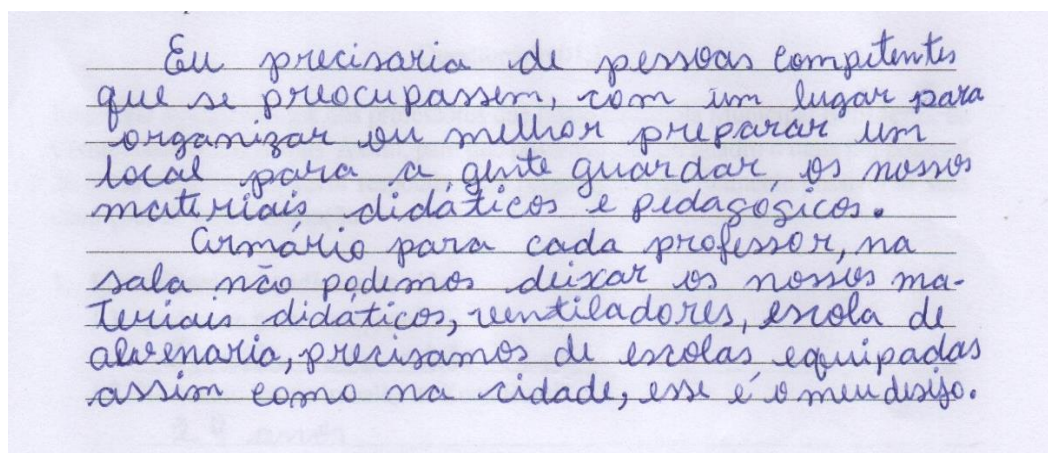 Eu precisaria de pessoas competentes
que se preocupassem, com um lugar para
organizar ou melhor preparar um
local para a gente guardar, os nossos
materiais didaticos e pedagogicos.
Armário para cada professor, na
sala não podemos deixar os nossos ma-
teriais didáticos, ventiladores, escola de
alvenaria, precisamos de escolas equipadas
assim como na cidade, esse é o meu desejo.